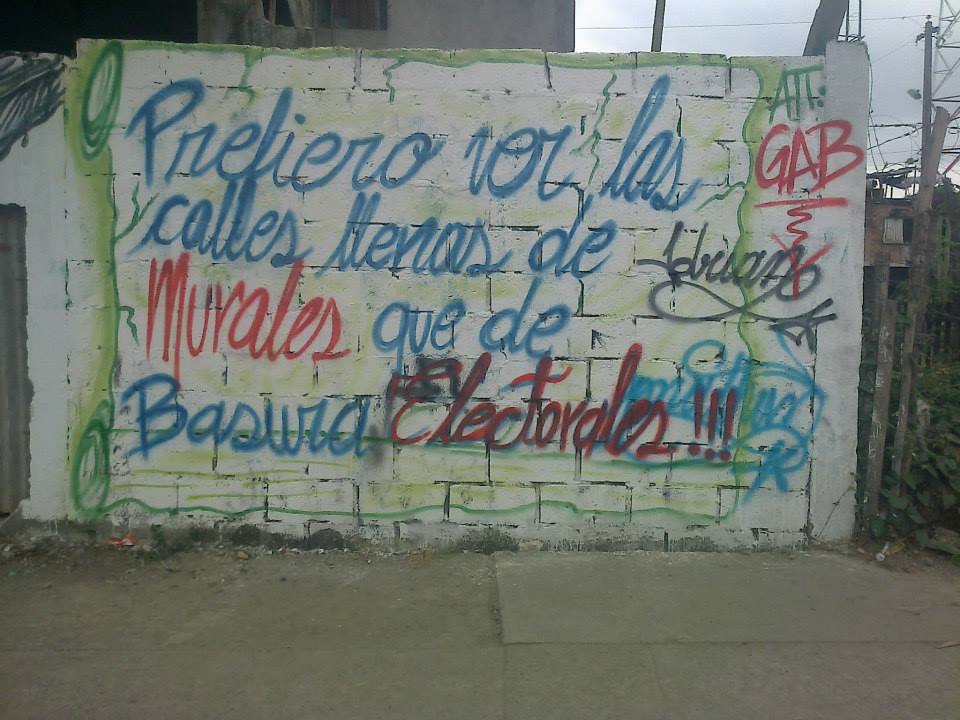 Prefiero ver las
calles llenas de
Murales que de
Basura Electorales !!!
ATT:
GAB